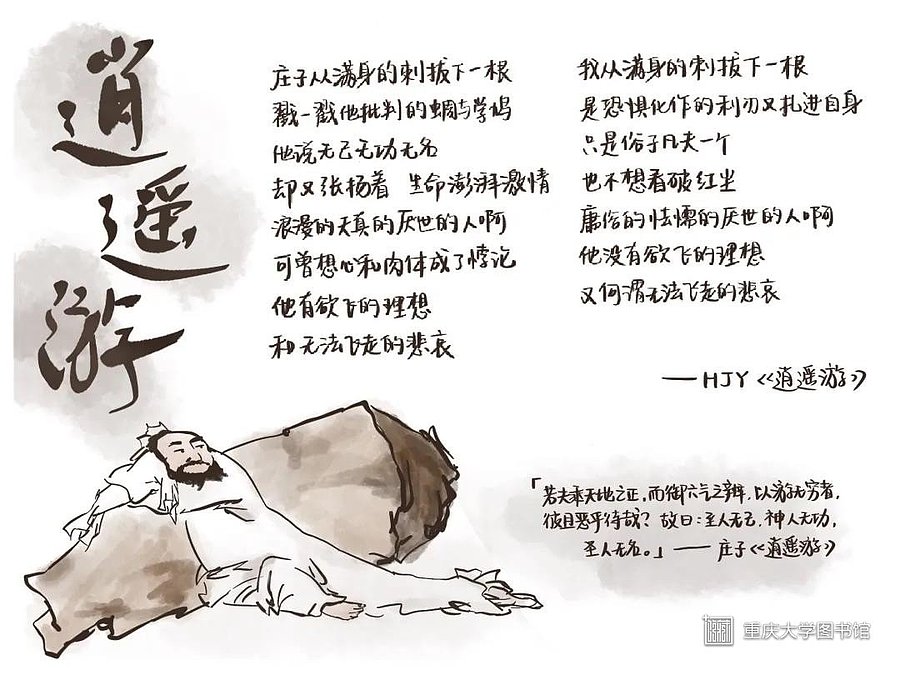 逍遥游
庄子从满身的刺拔下一根
戳一戳他批判的蜩与学鸠
他说无己无功无名
却又张扬着 生命澎湃激情
浪漫的天真的厌世的人啊
可曾想心和肉体成了悖论
他有欲飞的理想
和无法飞走的悲哀
我从满身的刺拔下一根
是恐惧化作的利刃又扎进自身
只是俗子凡夫一个
也不想看破红尘
庸俗的怯懦的厌世的人啊
他没有欲飞的理想
又何谓无法飞走的悲哀
——HJY《逍遥游》
「若夫乘天地之正,而御六气之辨,以游无穷者,
彼且恶乎待哉?故曰:至人无己,神人无功,
圣人无名。」——庄子《逍遥游》
重庆大学图书馆